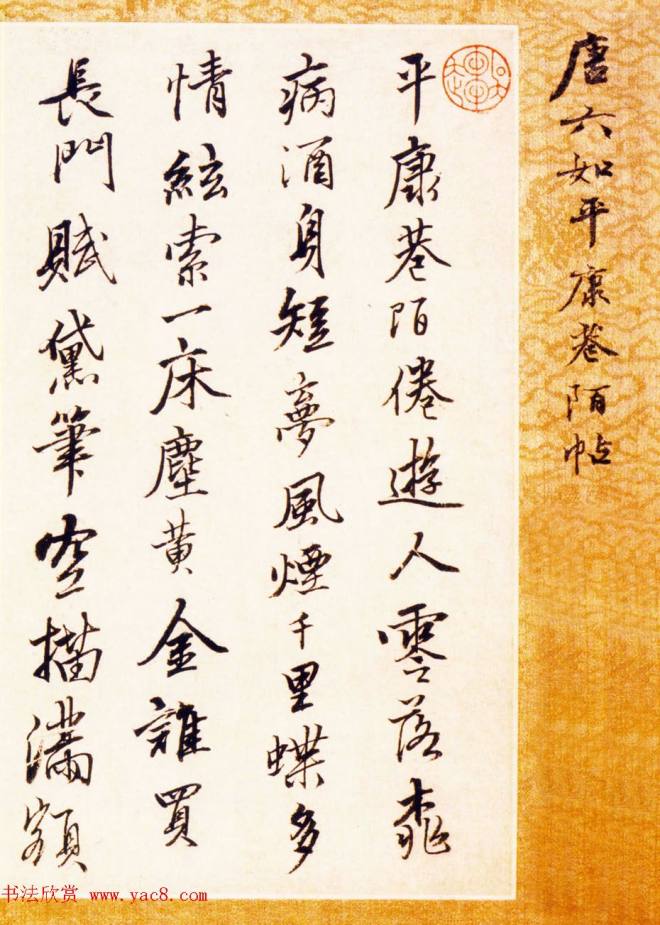 唐六如平康巷陌帖
平康巷陌倦遊人零落桃
病酒身短夢風煙千里蝶多
情絃索一床塵黃金難買
長門賦黛筆空描滿額
书法欣赏 www.yac8.com